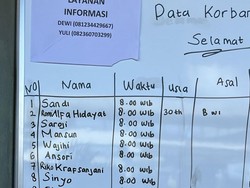 LAYANAN
INFORMASI
DEWI (081234429667)
YULI (082360703299)
Data Korban
Selamat
NO Nama Waktu Usia Asal
1 Sandi 8.00 wib
2 Romi Alfa Hidayat 8.00 wib 30 th BWI
3 Saroji 8.00 wib
4 Mansun 8.00 wib
5 Wajihi 8.00 wib
6 Ansori 8.00 wib
7 Riko Krapsanjani 8.00 wib
8 Sinyo 8.00 wib